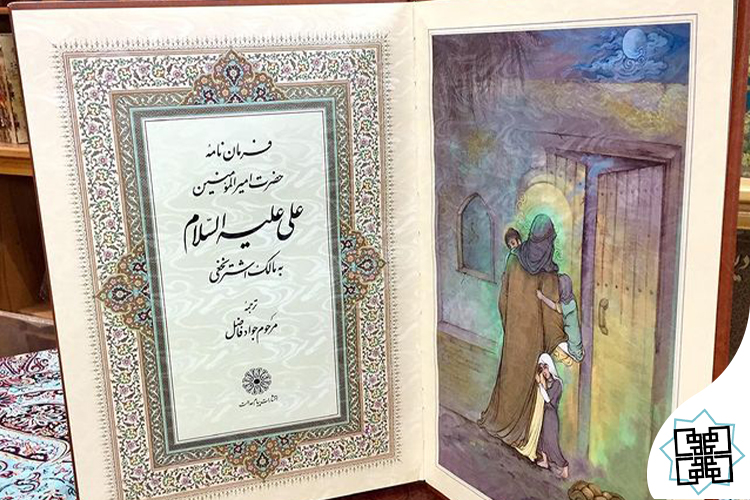 فرمان نامهٔ
حضرت امیرالمؤمنین
علی علیه السّلام
به مالک اشتر نخعی
ترجمهٔ
مرحوم جواد فاضل
انتشارات پیام عدالت